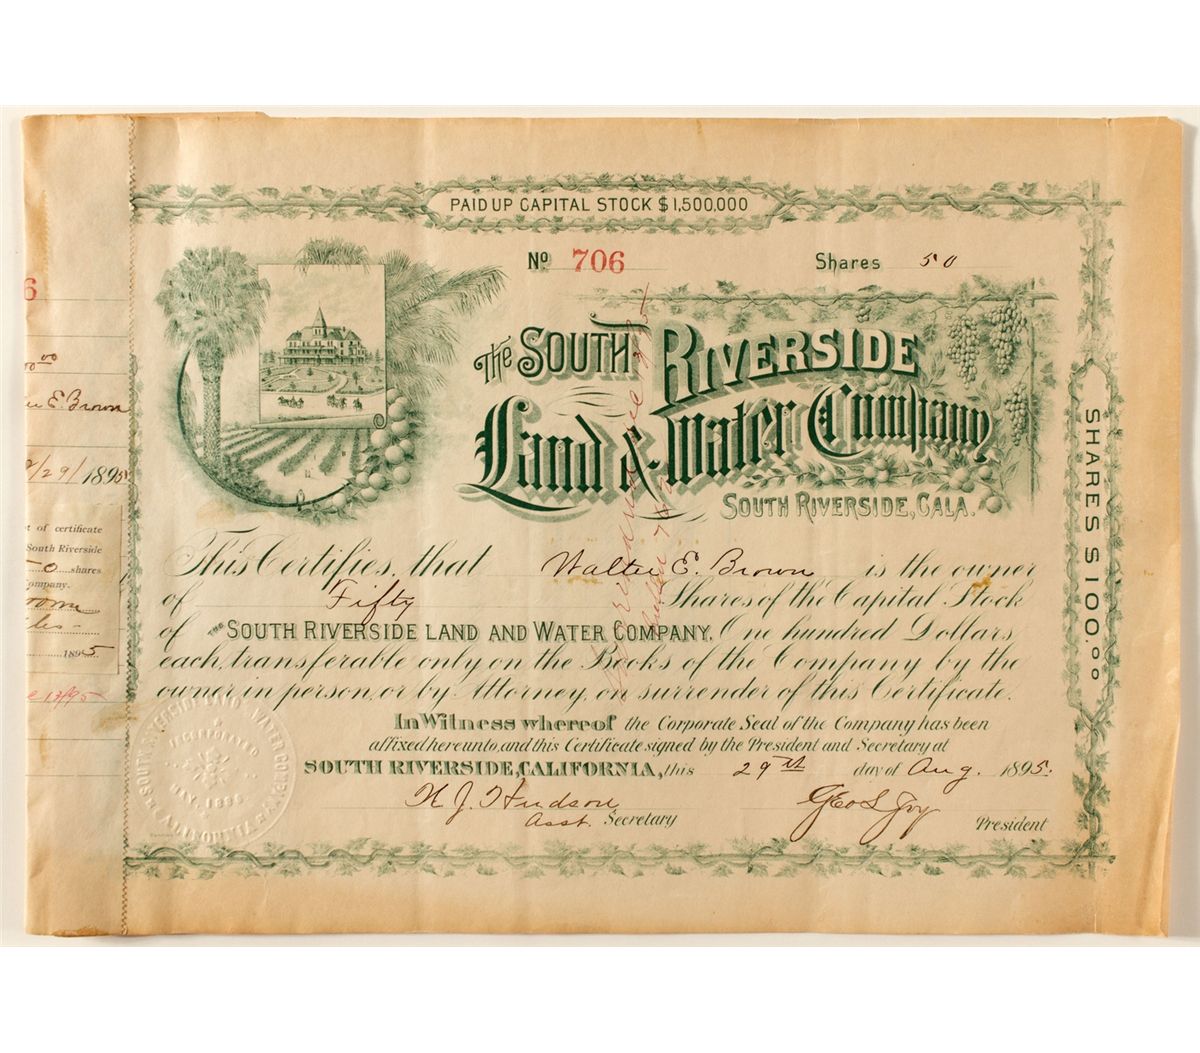 PAID UP CAPITAL STOCK $1,500,000
No 706 Shares 50
THE SOUTH RIVERSIDE
Land & Water Company
SOUTH RIVERSIDE, CALA.
SHARES $100.00
This Certifies, that Walter E. Brown is the owner
of Fifty Shares of the Capital Stock
of THE SOUTH RIVERSIDE LAND AND WATER COMPANY, One hundred Dollars
each, transferable only on the Books of the Company by the
owner in person, or by Attorney, on surrender of this Certificate.
In Witness whereof the Corporate Seal of the Company has been
affixed hereunto, and this Certificate signed by the President and Secretary at
SOUTH RIVERSIDE, CALIFORNIA, this 29th day of Aug. 1895.
Asst. Secretary
Geo L Joy President
Hudson
SOUTH RIVERSIDE LAND & WATER COMPANY
INCORPORATED
MAY, 1886
CALIFORNIA
6
00
E. Brown
/29/ 1895
t of certificate
South Riverside
50 shares
ompany.
1895